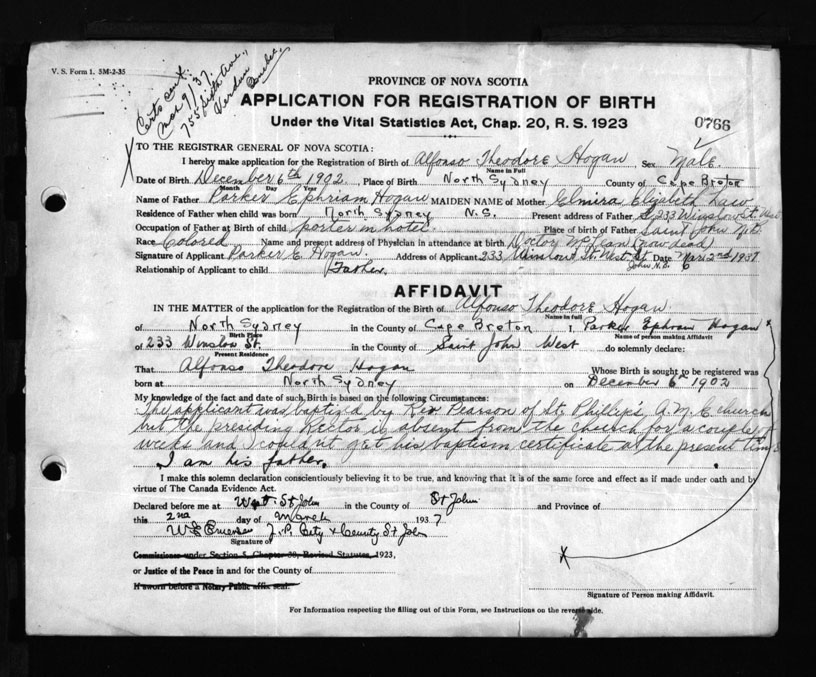 V. S. Form 1. 5M-2-35
Certs ent.
Mar 9/37.
755 Sixth Ave.,
Verdun
Quebec.
PROVINCE OF NOVA SCOTIA
APPLICATION FOR REGISTRATION OF BIRTH
Under the Vital Statistics Act, Chap. 20, R. S. 1923
0766
TO THE REGISTRAR GENERAL OF NOVA SCOTIA:
I hereby make application for the Registration of Birth of Alfonso Theodore Hogan Sex Male
Name in Full
Date of Birth December 6th 1902 Place of Birth North Sydney County of Cape Breton
Month Day Year
Name of Father Parker Ephriam Hogan MAIDEN NAME of Mother Elmira Elizabeth Law
Residence of Father when child was born North Sydney N.S. Present address of Father 233 Winslow St. West
Occupation of Father at Birth of child porter in hotel Place of birth of Father Saint John N.B.
Race Colored Name and present address of Physician in attendance at birth Doctor McLean (now dead)
Signature of Applicant Parker E. Hogan. Address of Applicant 233 Winslow St. West St. John N.B. Date Mar 2nd 1937
Relationship of Applicant to child Father.
AFFIDAVIT
IN THE MATTER of the application for the Registration of the Birth of Alfonso Theodore Hogan
Name in full
of North Sydney in the County of Cape Breton I, Parker Ephram Hogan
Birth Place Name of person making Affidavit
of 233 Winslow St. in the County of Saint John West do solemnly declare:
Present Residence
That Alfonso Theodore Hogan Whose Birth is sought to be registered was
born at North Sydney on December 6th 1902
My knowledge of the fact and date of such Birth is based on the following Circumstances:
The applicant was baptized by Rev Pearson of St. Phillip's A.M.E church
but the presiding Rector is absent from the church for a couple of
weeks and I couldn't get his baptism certificate at the present time
I am his father.
I make this solemn declaration conscientiously believing it to be true, and knowing that it is of the same force and effect as if made under oath and by
virtue of The Canada Evidence Act.
Declared before me at West St John in the County of St John and Province of
this 2nd day of March 1937
J.P. City & County St John
Signature of
Commissioner under Section 5, Chapter 38, Revised Statutes, 1923,
or Justice of the Peace in and for the County of
If sworn before a Notary Public affix seal.
X
Signature of Person making Affidavit.
For Information respecting the filling out of this Form, see Instructions on the reverse side.